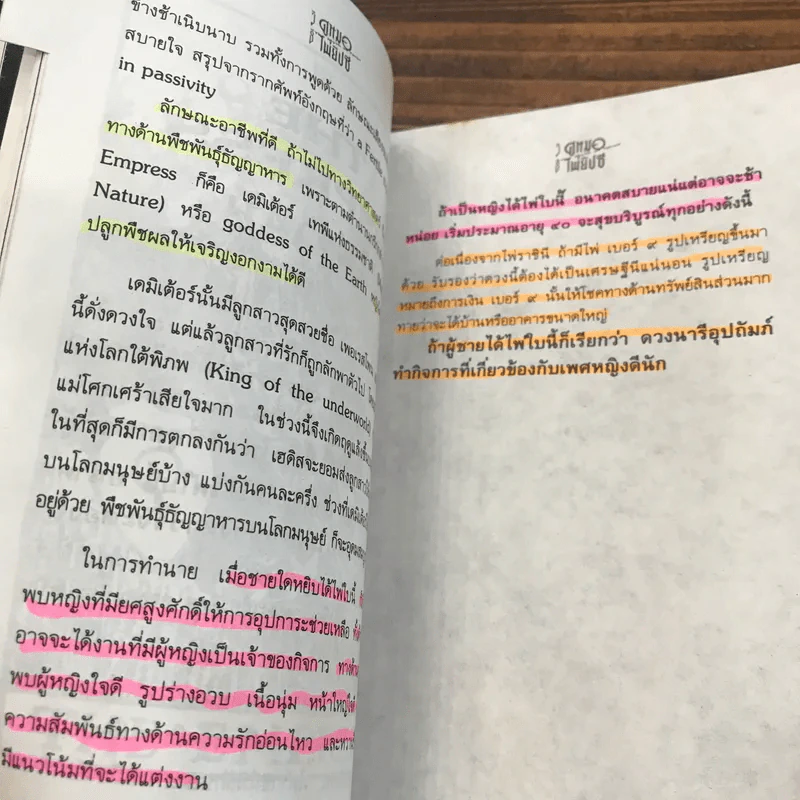 ข้างช้าเนิบนาบ รวมทั้งการพูดด้วย
สบายใจ สรุปจากรากศัพท์อังกฤษที่ว่า a Female
in passivity
ลักษณะอาชีพที่ดี ถ้าไม่ไปทาง
ทางด้านพืชพันธุ์ธัญญาหาร เพราะตามตำนาน
Empress ก็คือ เดมิเต้อร์ เทพีแห่งธรรมชาติ
Nature) หรือ goddess of the Earth
ปลูกพืชผลให้เจริญงอกงามได้ดี
เดมิเต้อร์นั้นมีลูกสาวสุดสวยชื่อ
นี้ดั่งดวงใจ แต่แล้วลูกสาวที่รักก็ถูกลักพาตัวไป
แห่งโลกใต้พิภพ (King of the underworld
แม่โศกเศร้าเสียใจมาก ในช่วงนี้จึงเกิดฤดูแล้ง
ในที่สุดก็มีการตกลงกันว่า เฮดิสจะยอมส่งลูกสาว
บนโลกมนุษย์บ้าง แบ่งกันคนละครึ่ง ช่วงที่
อยู่ด้วย พืชพันธุ์ธัญญาหารบนโลกมนุษย์ ก็จะ
ในการทำนาย เมื่อชายใดหยิบได้ไพ่ใบนี้
พบหญิงที่มียศสูงศักดิ์ให้การอุปการะช่วยเหลือ
อาจจะได้งานที่มีผู้หญิงเป็นเจ้าของกิจการ ทางด้าน
พบผู้หญิงใจดี รูปร่างอวบ เนื้อนุ่ม
ความสัมพันธ์ทางด้านความรักอ่อนไหว
มีแนวโน้มที่จะได้แต่งงาน
ถ้าเป็นหญิงได้ไพ่ใบนี้ อนาคตสบายแน่แต่อาจจะช้า
หน่อย เริ่มประมาณอายุ ๔๐ จะสุขบริบูรณ์ทุกอย่างดังนี้
ต่อเนื่องจากไพ่ราชินี ถ้ามีไพ่ เบอร์ ๙ รูปเหรียญขึ้นมา
ด้วย รับรองว่าดวงนี้ต้องได้เป็นเศรษฐีนีแน่นอน รูปเหรียญ
หมายถึงการเงิน เบอร์ ๙ นั้นให้โชคทางด้านทรัพย์สินส่วนมาก
ทายว่าจะได้บ้านหรืออาคารขนาดใหญ่
ถ้าผู้ชายได้ไพ่ใบนี้ก็เรียกว่า ดวงนารีอุปถัมภ์
ทำกิจการที่เกี่ยวข้องกับเพศหญิงดีนัก